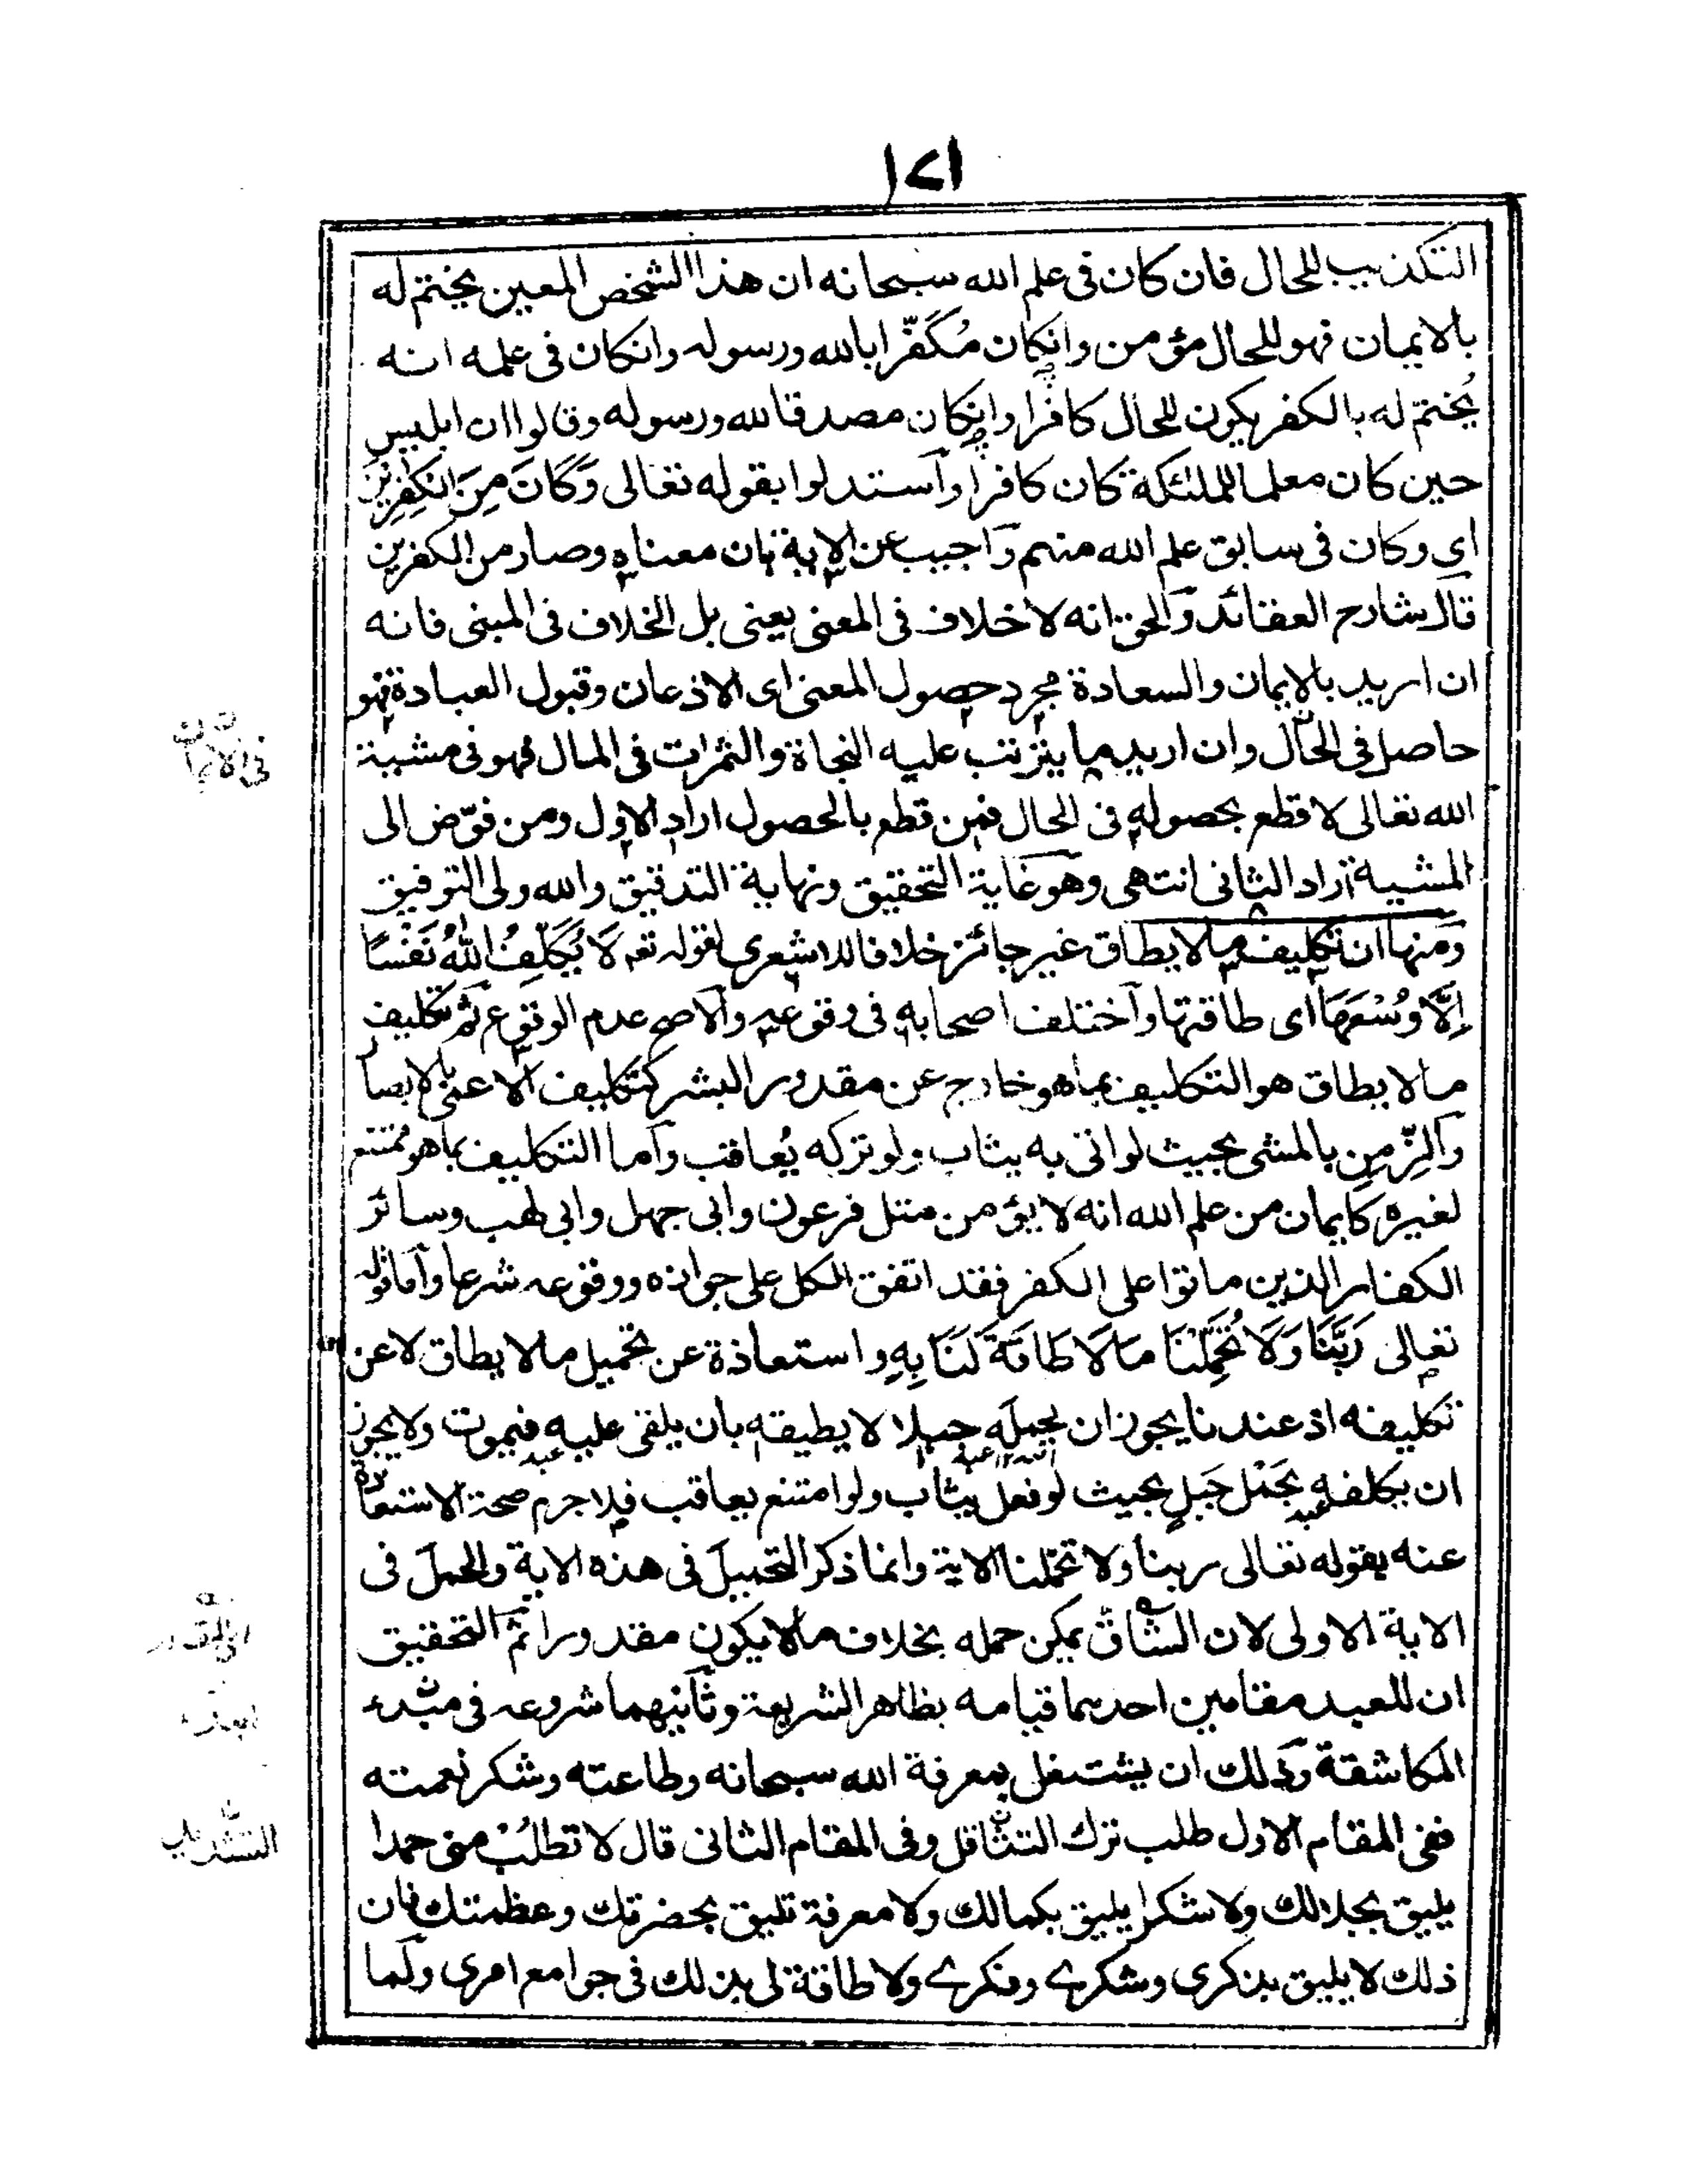 ١٧١
التكذيب للحال فان كان فى علم الله سبحانه ان هذا الشخص المعين يختم له
بالايمان فهو للحال مؤمن وانكان مُكَفِّرا بالله ورسوله وانكان فى علمه انه
يُختم له بالكفر يكون للحال كافرا وانكان مصدقا لله ورسوله وقالوا ان ابليس
حين كان معلما للملئكة كان كافرا وآستدلوا بقوله تعالى وَكَانَ مِنَ الْكٰفِرِيْنَ
اى وكان فى سابق علم الله منهم وآجيب عن الاية بان معناه وصار من الكفرين
قال شارح العقائد وآلحق انه لا خلاف فى المعنى يعنى بل الخلاف فى المبنى فانه
ان اريد بالايمان والسعادة مجرد حصول المعنى اى الاذعان وقبول العبادة فهو
حاصل فى الحال وان اريد ما يترتب عليه النجاة والثمرات فى المال فهو فى مشية
الله تعالى لا قطع بحصوله فى الحال فمن قطع بالحصول اراد الاول ومن فوّض الى
المشية اراد الثانى انتهى وهو غاية التحقيق ونهاية التدقيق والله ولى التوفيق
ومنها ان تكليف ما لا يطاق غير جائز خلافا للاشعرى لقوله تعم لَا يُكَلِّفُ اللّٰهُ نَفْسًا
اِلَّا وُسْعَهَا اى طاقتها وآختلف اصحابه فى وقوعه وآلاصح عدم الوقوع ثم تكليف
ما لا يطاق هو التكليف بما هو خارج عن مقدور البشر كتكليف الاعمى بالابصار
وآلزّمِن بالمشى بحيث لو اتى به يثاب ولو تركه يُعاقب وآما التكليف بما هو ممتنع
لغيره كايمان من علم الله انه لا يؤمن مثل فرعون وابى جهل وابى لهب وسائر
الكفار الذين ماتوا على الكفر فقد اتفق الكل على جوازه ووقوعه شرعا وآما قوله
تعالى رَبَّنَا وَلَا تُحَمِّلْنَا مَا لَا طَاقَةَ لَنَا بِهٖ واستعاذة عن تحميل ما لا يطاق لا عن
تكليفه اذ عندنا يجوز ان يحمله جبلا لا يطيقه بان يلقى عليه فيموت ولا يجوز
ان يكلفه بحَمْل جَبَلٍ بحيث لو فعل يثاب ولو امتنع يعاقب فلا جرم صحة الاستعاذة
عنه بقوله تعالى ربنا ولا تحمّلنا الاية وانما ذكر التحميل فى هذه الاية والحمل فى
الاية الاولى لان الشاقّ يمكن حمله بخلاف ما لا يكون مقدورا ثم التحقيق
ان للعبد مقامين احدهما قيامه بظاهر الشريعة وثانيهما شروعه فى مبدء
المكاشفة وذلك ان يشتغل بمعرفة الله سبحانه وطاعته وشكر نعمته
ففى المقام الاول طلب ترك التثاقل وفى المقام الثانى قال لا تطلبْ منى حمدا
يليق بجلالك ولا شكرا يليق بكمالك ولا معرفة تليق بحضرتك وعظمتك فان
ذلك لا يليق بذكرى وشكرى وفكرى ولا طاقة لى بذلك فى جوامع امرى ولما